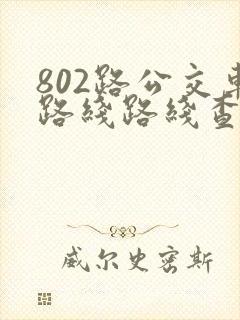 802路公交车
路线路线查
威尔史密斯